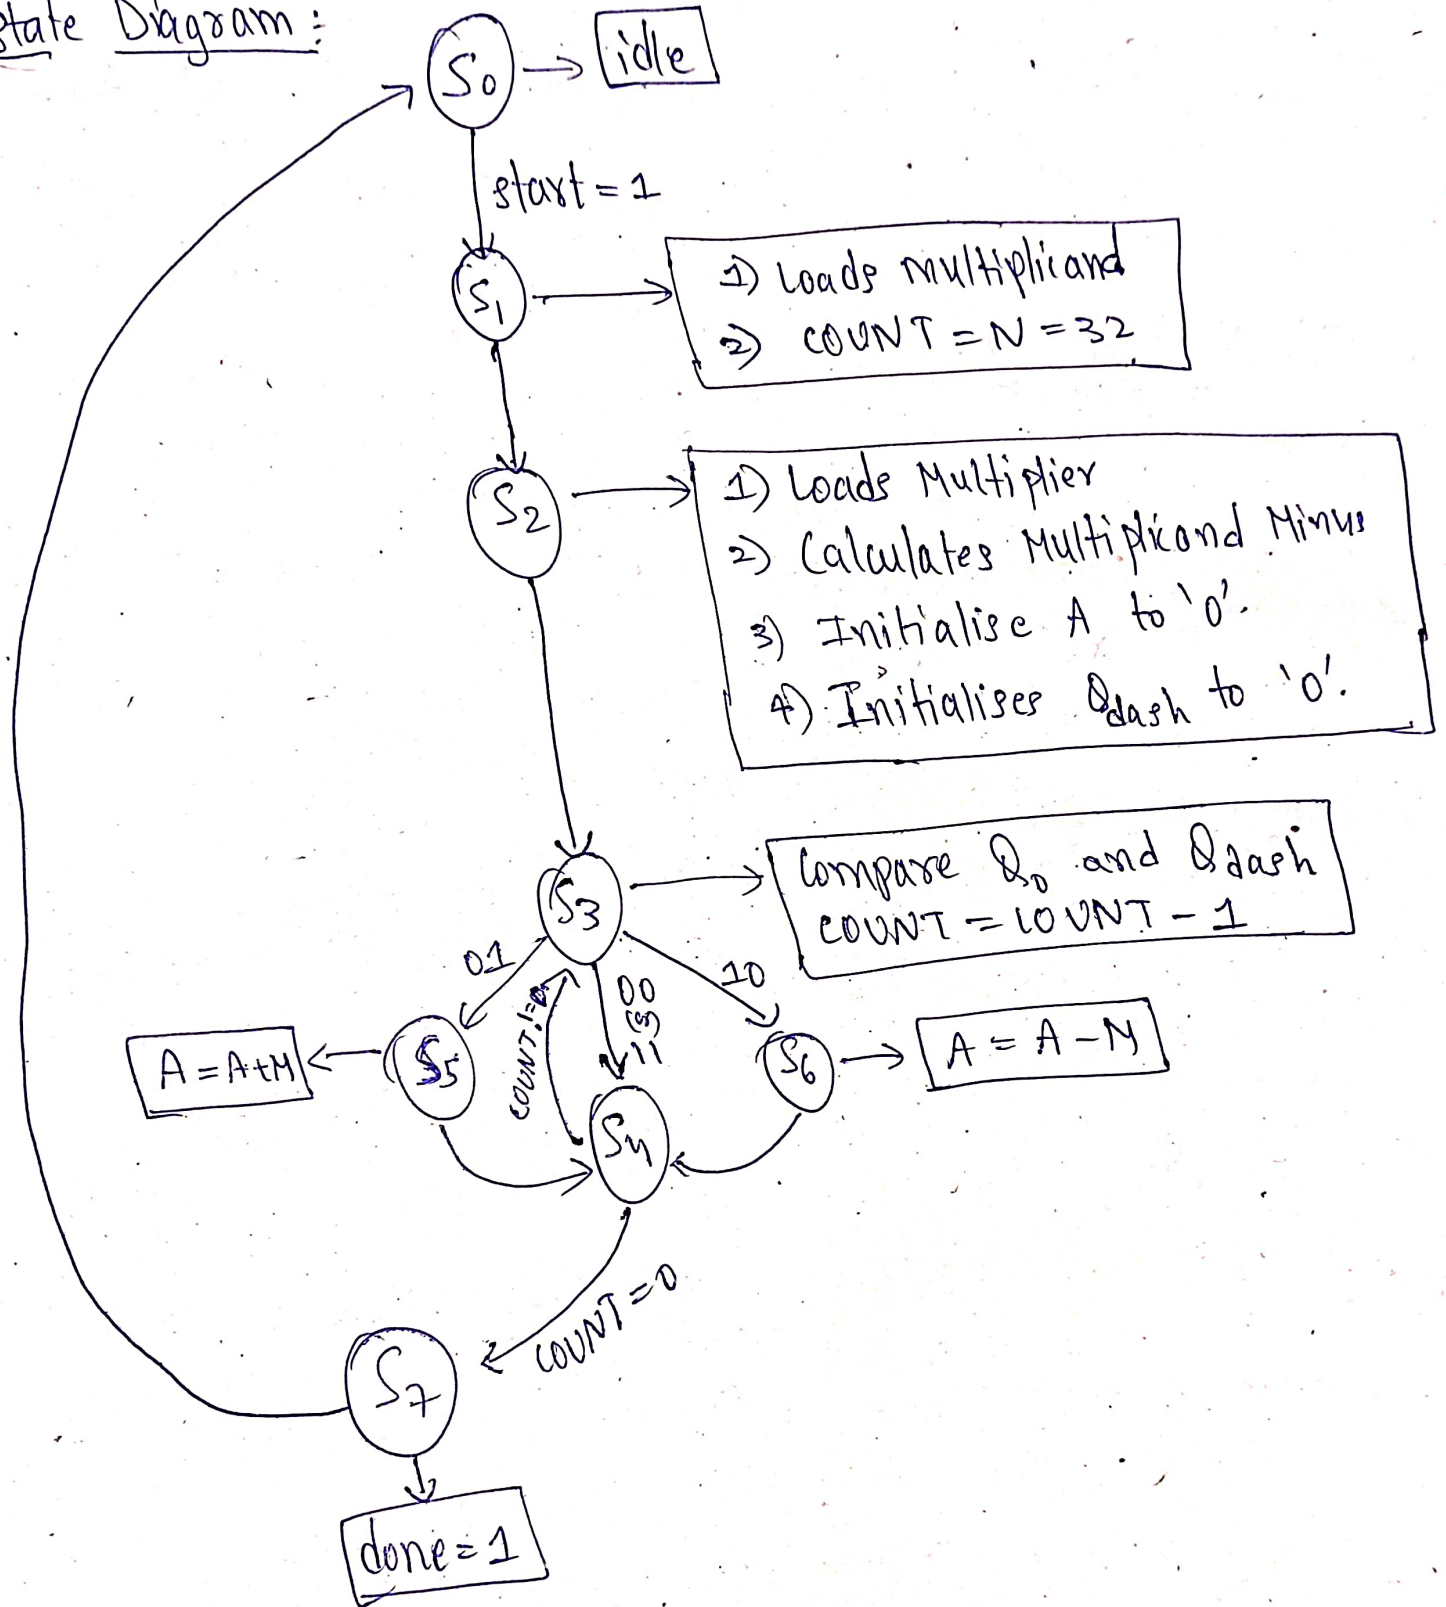 State Diagram :
S0
idle
start = 1
S1
1) Loads multiplicand
2) COUNT = N = 32
S2
1) Loads Multiplier
2) Calculates Multiplicand Minus
3) Initialise A to '0'.
4) Initialises Qdash to '0'.
S3
Compare Q0 and Qdash
COUNT = COUNT - 1
01
COUNT != 0
00
(or)
11
10
A = A + M
S5
S6
A = A - M
S4
COUNT = 0
S7
done = 1